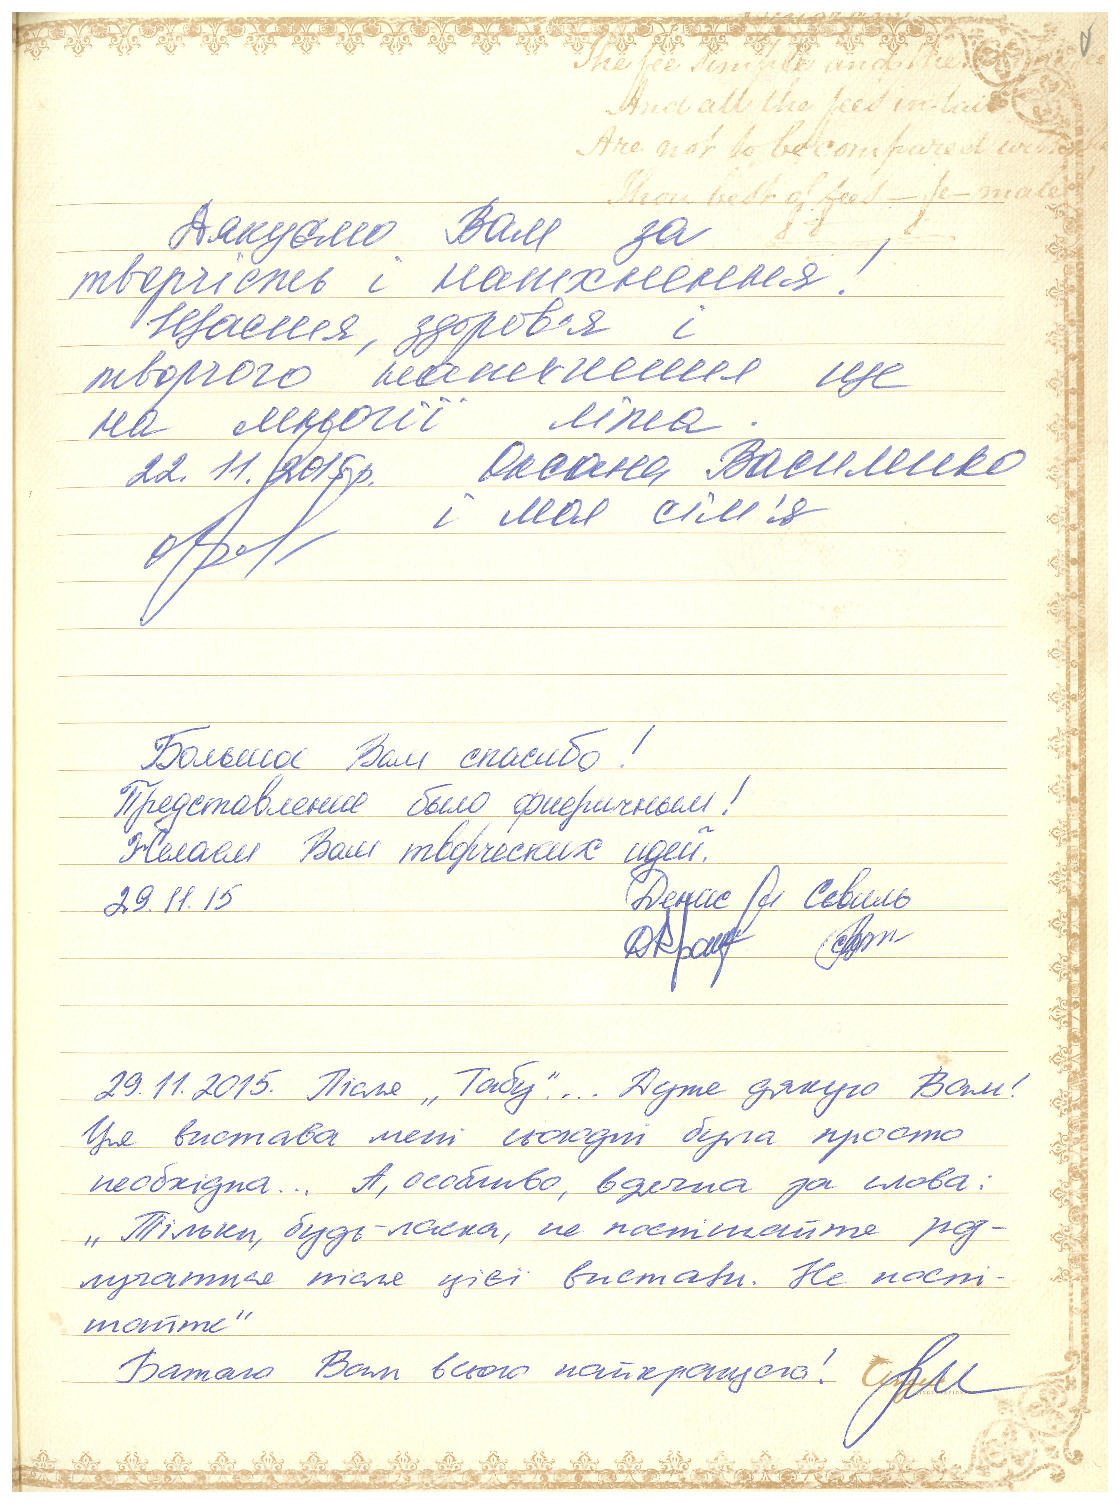 The fee simple and the
And all the fees in tail
Are not to be compared with
Thou best of fees — fe-male!
Дякуємо Вам за
творчість і натхнення!
Щастя, здоров'я і
творчого натхнення ще
на многії літа.
22.11.2015р. Оксана Василенко
і моя сім'я
Большое Вам спасибо!
Представление было фиеричным!
Желаем Вам творческих идей.
29.11.15 Денис и Севиль
29.11.2015. Після „Табу"... Дуже дякую Вам!
Ця вистава мені сьогодні була просто
необхідна... А, особливо, вдячна за слова:
„Тільки, будь-ласка, не поспішайте роз-
лучатися після цієї вистави. Не поспі-
шайте"
Бажаю Вам всього найкращого!